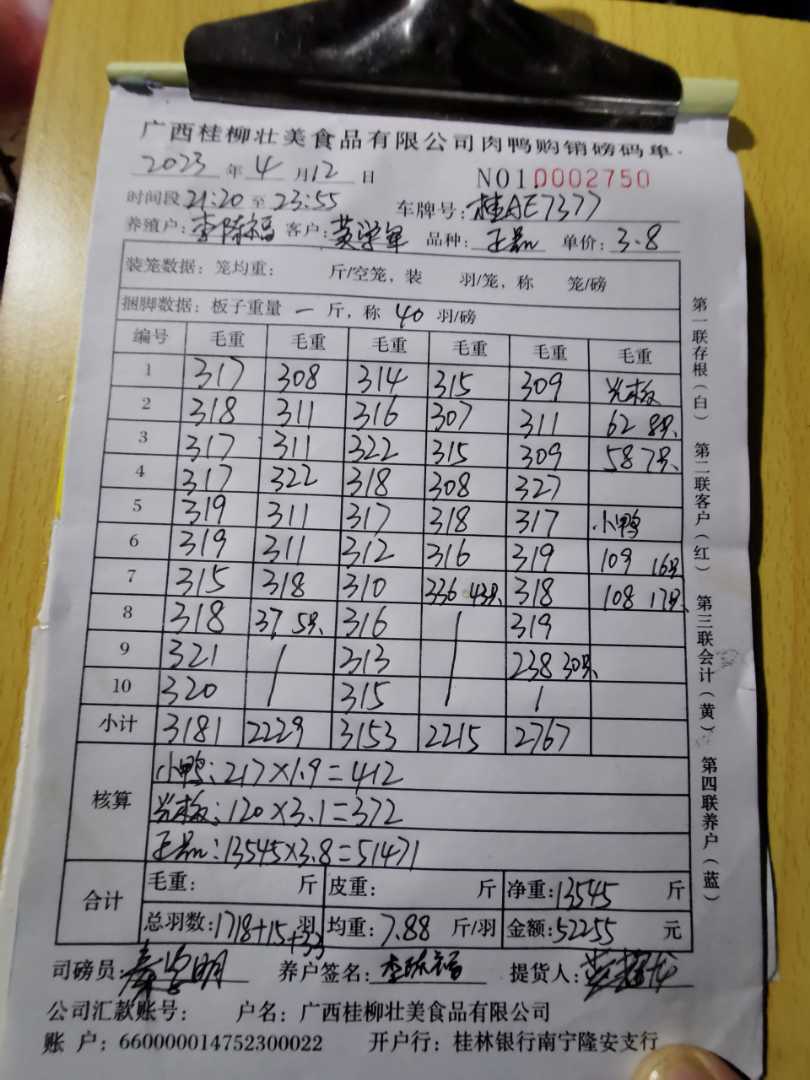 广西桂柳壮美食品有限公司肉鸭购销磅码单
2023 年 4 月 12 日 NO10002750
时间段 21:20 至 23:55 车牌号: 桂AE7377
养殖户: 李陈福 客户: 黄学军 品种: 正品 单价: 3.8
装笼数据: 笼均重: 斤/空笼, 装 羽/笼, 称 笼/磅
捆脚数据: 板子重量 一 斤, 称 40 羽/磅
编号 毛重 毛重 毛重 毛重 毛重 毛重
1 317 308 314 315 309
2 318 311 316 307 311 62 8只
3 317 311 322 315 309 58 7只
4 317 322 318 308 327
5 319 311 317 318 317 小鸭
6 319 311 312 316 319 109 16只
7 315 318 310 336 43只 318 108 17只
8 318 37 5只 316 / 319
9 321 / 313 / 238 30只
10 320 / 315 / /
小计 3181 2229 3153 2215 2767
核算
小鸭: 217×1.9=412
120×3.1=372
正品: 13545×3.8=51471
合计
毛重: 斤 皮重: 斤 净重: 13545 斤
总羽数: 1718+15+33 羽 均重: 7.88 斤/羽 金额: 52255 元
司磅员: 养户签名: 李陈福 提货人:
公司汇款账号: 户名: 广西桂柳壮美食品有限公司
账 户: 660000014752300022 开户行: 桂林银行南宁隆安支行
第一联存根(白) 第二联客户(红) 第三联会计(黄) 第四联养户(蓝)